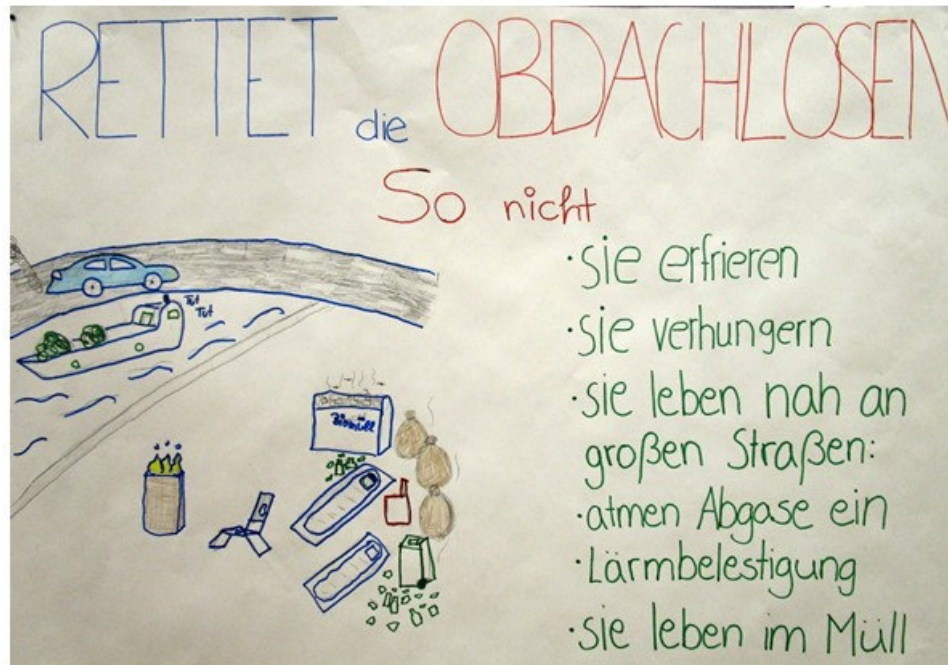 RETTET die OBDACHLOSEN
So nicht
·sie erfrieren
·sie verhungern
·sie leben nah an
großen Straßen:
·atmen Abgase ein
·Lärmbelestigung
·sie leben im Müll
Tut
Tut
Biomüll